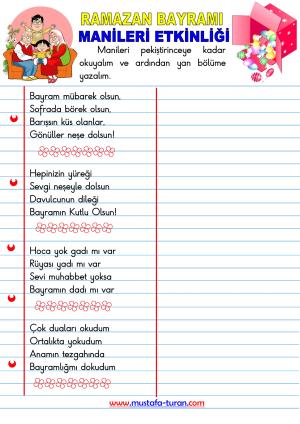 RAMAZAN BAYRAMI
MANİLERİ ETKİNLİĞİ
Manileri pekiştirinceye kadar
okuyalım ve ardından yan bölüme
yazalım.
Bayram mübarek olsun,
Sofrada börek olsun,
Barışsın küs olanlar,
Gönüller neşe dolsun!
Hepinizin yüreği
Sevgi neşeyle dolsun
Davulcunun dileği
Bayramın Kutlu Olsun!
Hoca yok gadı mı var
Rüyası yadı mı var
Sevi muhabbet yoksa
Bayramın dadı mı var
Çok duaları okudum
Ortalıkta yokudum
Anamın tezgahında
Bayramlığmı dokudum
www.mustafa-turan.com